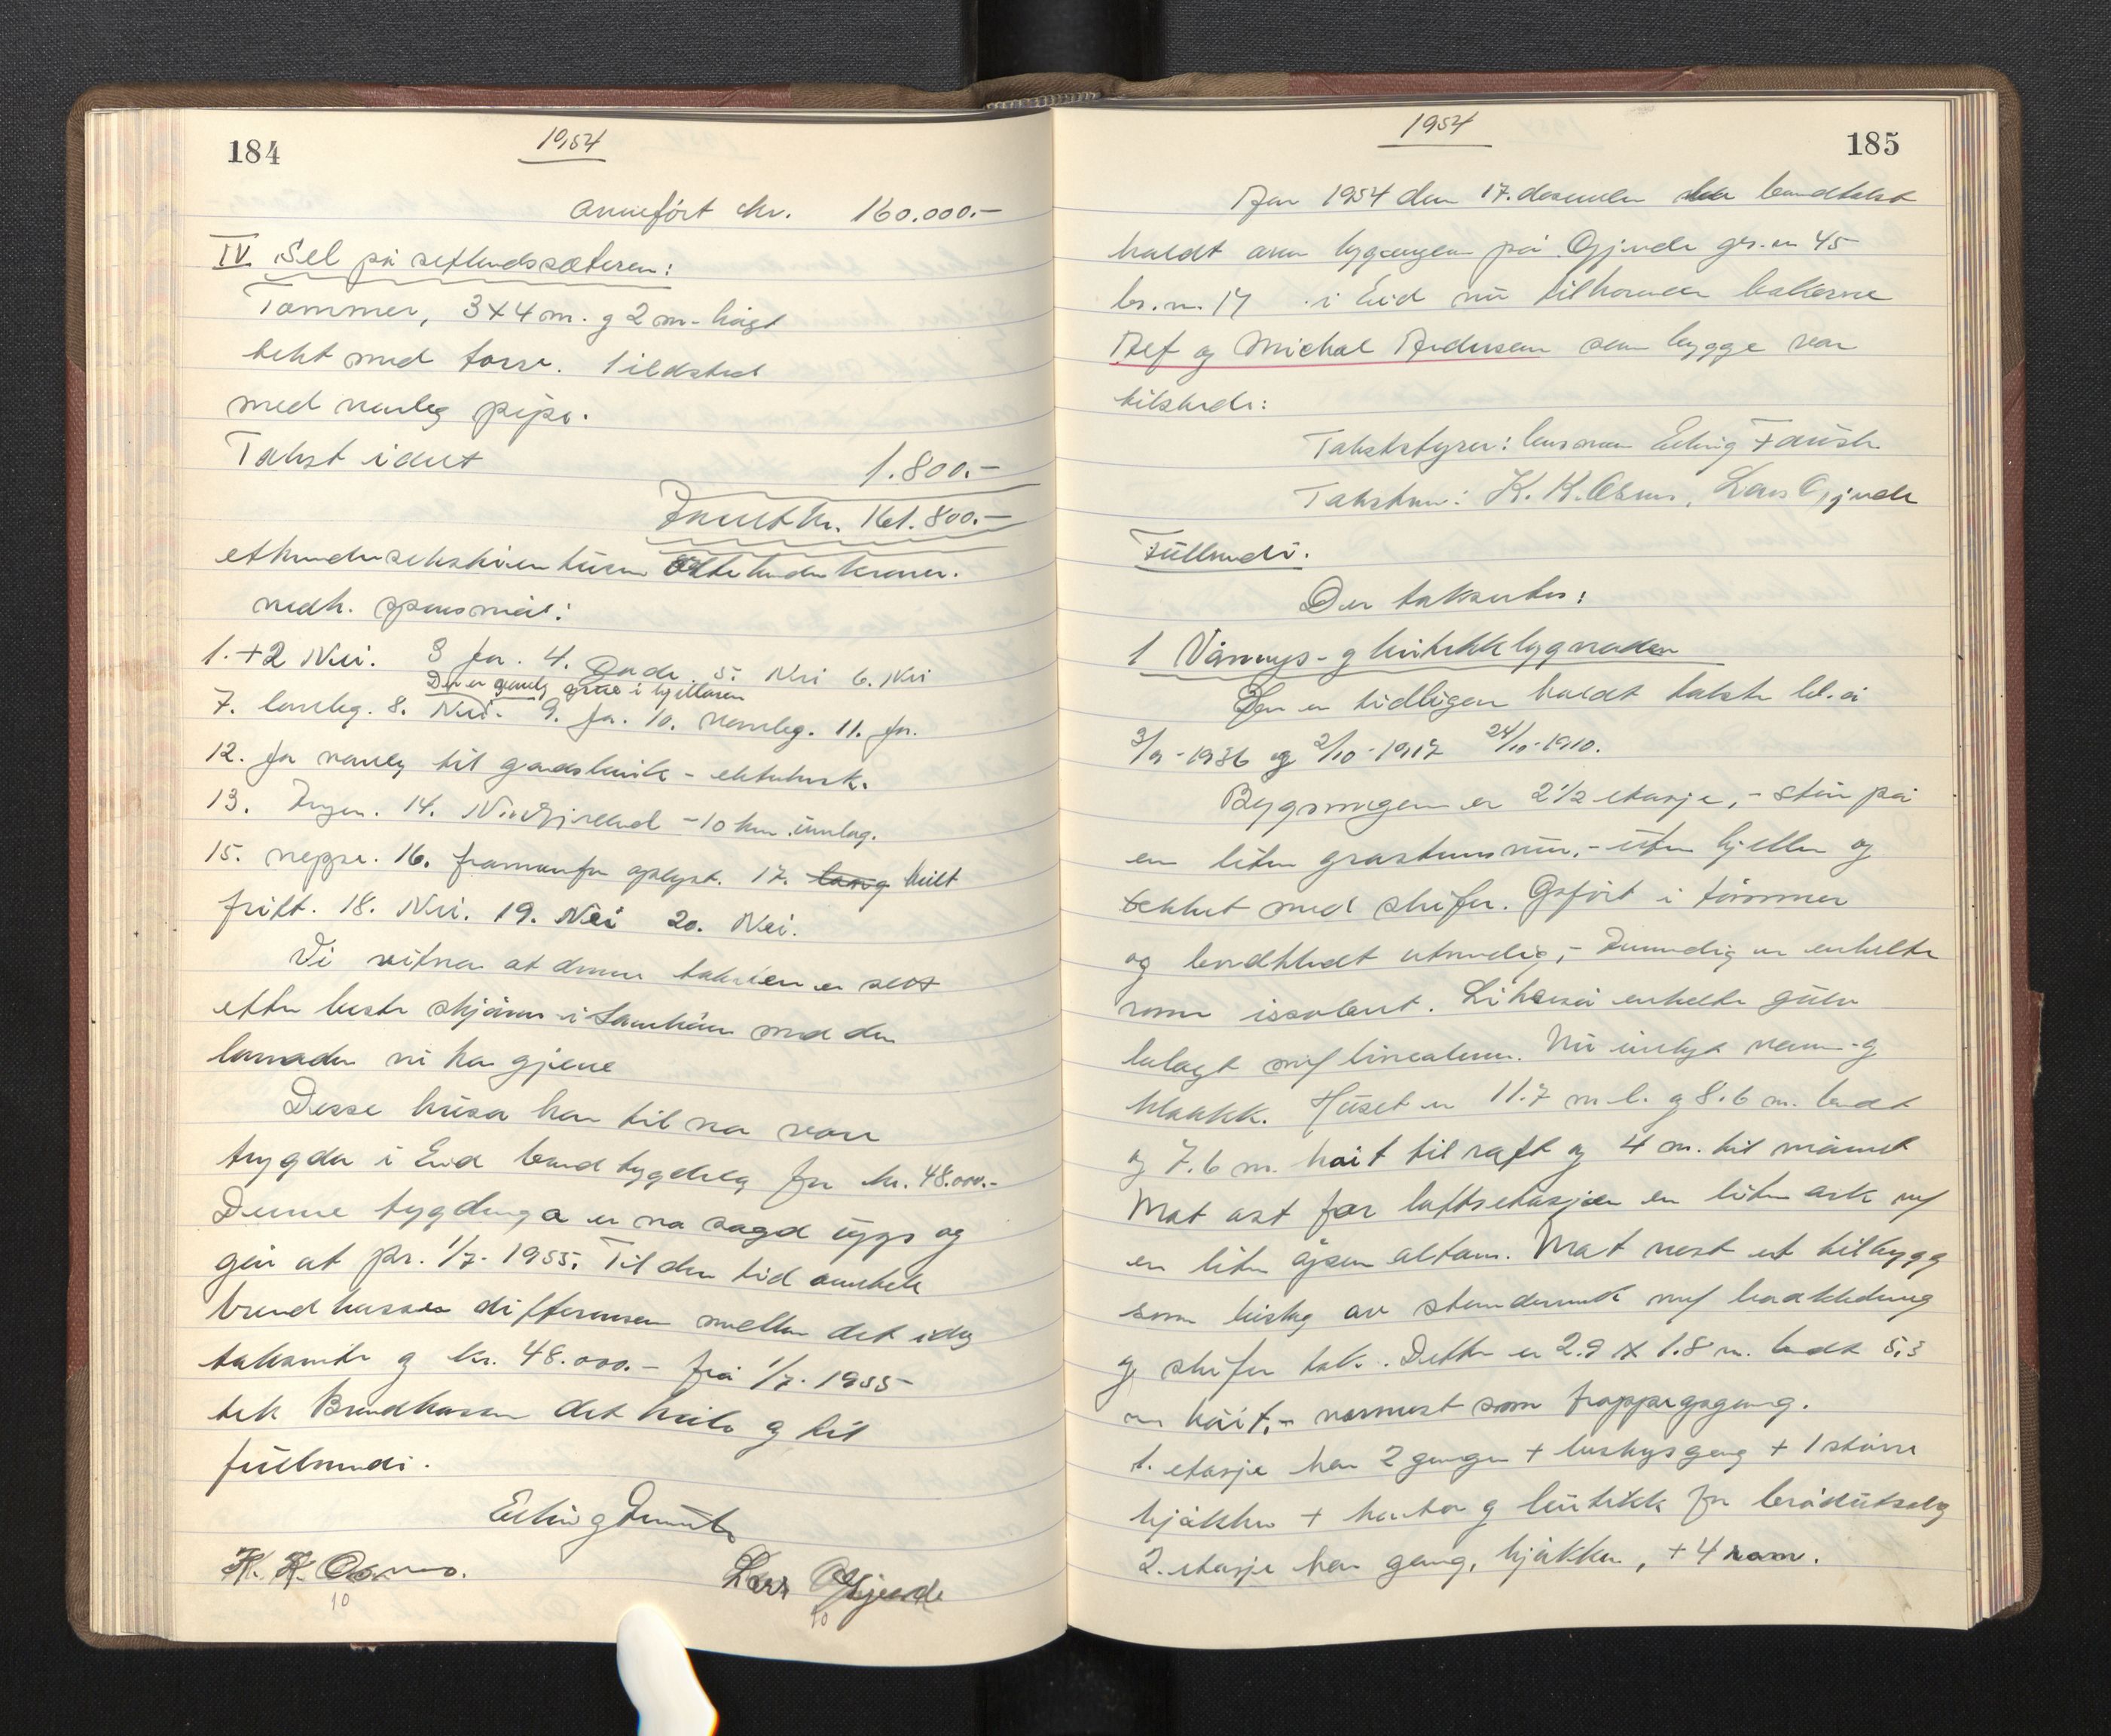 184
1954
Overført kr. 160.000.-
IV. Sel på setlendssæteren:
Tømmer, 3x4 m. og 2 m. högt
tekt med torv. 1 ildsted
med vanleg pipe.
Takst idet 1.800.-
Inalt kr. 161.800.-
etthundreseksti en tusen åtte hundre kroner.
vedk. spursmål:
1.+2 Nei. 3 Ja. 4. Gode. 5. Nei 6. Nei
Der er grue i kjellaren
7. lovleg. 8. Nei. 9. Ja. 10. vanleg. 11. Ja.
12. Ja vanleg til gardsbruk - elektrisk.
13. Ingen. 14. - 10 km. unna.
15. neppe. 16. framanfor oplyst. 17. heilt
fritt. 18. Nei. 19. Nei 20. Nei.
Vi vitnar at denne taksten er sett
etter beste skjønn i samhøve med den
lovnaden vi har gjeve
Desse husa har til no vore
trygda i Eid brandtrygdelag for kr. 48.000.-
Denne trygdinga er no sagd upp og
går ut pr. 1/7-1955. Til den tid overtek
brandkassen differensen mellom det idag
takserte og kr. 48.000.- frå 1/7-1955
tek Brandkassen det heile og til
fullverdi.
Erling Fauske
K. K. Osmo. Lars Gjerde
10 10
1954
185
Aar 1954 den 17. desember blei brandtakst
haldt over bygningen på Gjerde grs.nr 45
br.nr. 14 i Eid nu tilhørende bakerne
Alf og Michal Andersen som begge var
tilstede:
Takststyrer: lensmann Erling Fauske
Takstmenn: K. K. Osmo, Lars Gjerde
Fullverdi.
Der takseres:
1 Vånings- og butikkbygnaden
Der er tidligere haldt takster bl. a
3/9-1936 og 2/10-1917 24/10-1910.
Bygningen er 2 1/2 etasje, - står på
en liten gråstensmur, - uten kjeller og
tekket med skifer. Opført i tømmer
og bordkledt utvendig, - Innvendig er enkelte
rom issolert. Likeså enkelte gulv
belagt m/ linoleum. Nu innlagt vann og
kloakk. Huset er 11.7 m l. og 8.6 m. bredt
og 7.6 m. høit til raft og 4 m. til mønet
Mot øst for loftsetasjen en liten ark m/
en liten åpen altan. Mot vest et tilbygg
som består av stenderverk m/ bordkledning
og skifer tak. Dette er 2.9 x 1.8 m. bredt 5.3
m høit, - nærmest som trappegang.
1. etasje har 2 ganger + bislagsgang + 1 større
kjøkken + kontor og butikk for brødutsalg
2. etasje har gang, kjøkken, + 4 rom.